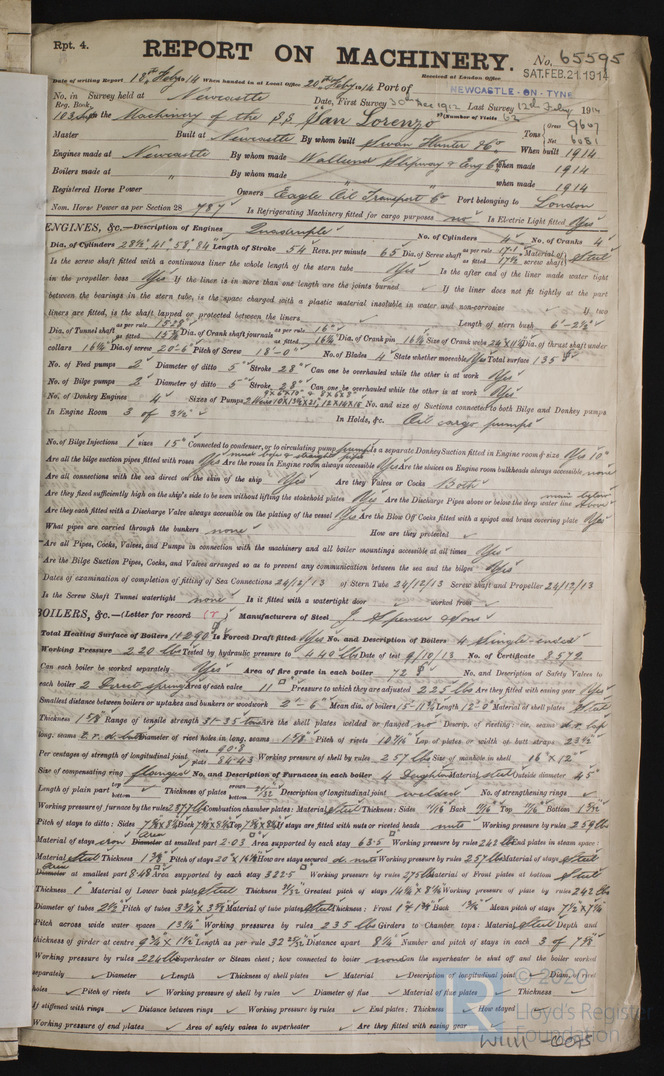 Rpt. 4.
REPORT ON MACHINERY.
No. 65595
SAT. FEB. 21. 1914
Date of writing Report 18th Feby 1914 When handed in at Local Office 20th Feby 1914 Port of
Received at London Office
NEWCASTLE-ON-TYNE
No. in Survey held at Newcastle Date, First Survey Dec 1912 Last Survey 12th Feby 1914
Reg. Book.
on the Machinery of the S.S. San Lorenzo (Number of Visits 62
Tons Gross 9607 Net 6081
Master Built at Newcastle By whom built Swan Hunter & Co When built 1914
Engines made at Newcastle By whom made Wallsend Slipway & Eng Co when made 1914
Boilers made at " By whom made " when made 1914
Registered Horse Power Owners Eagle Oil Transport Co Port belonging to London
Nom. Horse Power as per Section 28 787 Is Refrigerating Machinery fitted for cargo purposes no Is Electric Light fitted Yes
ENGINES, &c.—Description of Engines Quadruple No. of Cylinders 4 No. of Cranks 4
Dia. of Cylinders 28½", 41", 58", 84" Length of Stroke 54 Revs. per minute 65 Dia. of Screw shaft as per rule 17.1 as fitted 17¾ Material of screw shaft Steel
Is the screw shaft fitted with a continuous liner the whole length of the stern tube Yes Is the after end of the liner made water tight
in the propeller boss Yes If the liner is in more than one length are the joints burned If the liner does not fit tightly at the part
between the bearings in the stern tube, is the space charged with a plastic material insoluble in water and non-corrosive If two
liners are fitted, is the shaft lapped or protected between the liners Length of stern bush 6'-2½"
Dia. of Tunnel shaft as per rule as fitted 15¾ Dia. of Crank shaft journals as per rule 16" as fitted 16¼ Dia. of Crank pin 16¼ Size of Crank webs Dia. of thrust shaft under
collars 16¼ Dia. of screw 20'-6" Pitch of Screw 18'-0" No. of Blades 4 State whether moveable Yes Total surface 135
No. of Feed pumps 2 Diameter of ditto 5" Stroke 28" Can one be overhauled while the other is at work Yes
No. of Bilge pumps 2 Diameter of ditto 5" Stroke 28" Can one be overhauled while the other is at work Yes
No. of Donkey Engines 4 Sizes of Pumps No. and size of Suctions connected to both Bilge and Donkey pumps
In Engine Room 3 of 3½" In Holds, &c. Oil cargo pumps
No. of Bilge Injections 1 sizes 15" Connected to condenser, or to circulating pump pump Is a separate Donkey Suction fitted in Engine room & size Yes 10"
Are all the bilge suction pipes fitted with roses Yes Are the roses in Engine room always accessible Yes Are the sluices on Engine room bulkheads always accessible none
Are all connections with the sea direct on the skin of the ship Yes Are they Valves or Cocks Both
Are they fixed sufficiently high on the ship's side to be seen without lifting the stokehold plates Yes Are the Discharge Pipes above or below the deep water line main below Above
Are they each fitted with a Discharge Valve always accessible on the plating of the vessel Yes Are the Blow Off Cocks fitted with a spigot and brass covering plate Yes
What pipes are carried through the bunkers none How are they protected
Are all Pipes, Cocks, Valves, and Pumps in connection with the machinery and all boiler mountings accessible at all times Yes
Are the Bilge Suction Pipes, Cocks, and Valves arranged so as to prevent any communication between the sea and the bilges Yes
Dates of examination of completion of fitting of Sea Connections 24/2/13 of Stern Tube 24/12/13 Screw shaft and Propeller 24/12/13
Is the Screw Shaft Tunnel watertight none Is it fitted with a watertight door worked from
BOILERS, &c.—(Letter for record (r) Manufacturers of Steel J. Spencer & Sons
Total Heating Surface of Boilers Is Forced Draft fitted Yes No. and Description of Boilers 4 Single-ended
Working Pressure 220 lbs Tested by hydraulic pressure to 440 lbs Date of test 9/10/13 No. of Certificate 8572
Can each boiler be worked separately Yes Area of fire grate in each boiler 72 No. and Description of Safety Valves to
each boiler 2 Direct spring Area of each valve 11 Pressure to which they are adjusted 225 lbs Are they fitted with easing gear Yes
Smallest distance between boilers or uptakes and bunkers or woodwork 2'-6" Mean dia. of boilers 15-11¾ Length 12-0 Material of shell plates Steel
Thickness Range of tensile strength 31-35 tons Are the shell plates welded or flanged no Descrip. of riveting: cir. seams d.r. lap
long. seams t.r. d. butt Diameter of rivet holes in long. seams Pitch of rivets Lap of plates or width of butt straps
Per centages of strength of longitudinal joint rivets 90.8 plate 84.43 Working pressure of shell by rules 257 lbs Size of manhole in shell 16" x 12"
Size of compensating ring flanged No. and Description of Furnaces in each boiler 4 Deighton Material Steel Outside diameter 45"
Length of plain part top bottom Thickness of plates crown bottom Description of longitudinal joint welded No. of strengthening rings
Working pressure of furnace by the rules 237 lbs Combustion chamber plates: Material Steel Thickness: Sides 11/16 Back Top Bottom
Pitch of stays to ditto: Sides Back Top If stays are fitted with nuts or riveted heads nuts Working pressure by rules 259 lbs
Material of stays iron area Diameter at smallest part 2.03 Area supported by each stay 63.5 Working pressure by rules 242 lbs End plates in steam space:
Material Steel Thickness Pitch of stays How are stays secured d. nuts Working pressure by rules 257 lbs Material of stays Steel
area Diameter at smallest part 8.48 Area supported by each stay 322.5 Working pressure by rules 275 lbs Material of Front plates at bottom Steel
Thickness 1" Material of Lower back plate Steel Thickness 31/32 Greatest pitch of stays Working pressure of plate by rules 242 lbs
Diameter of tubes 2½ Pitch of tubes Material of tube plates Steel Thickness: Front Back Mean pitch of stays
Pitch across wide water spaces 13¾" Working pressures by rules 235 lbs Girders to Chamber tops: Material Steel Depth and
thickness of girder at centre Length as per rule Distance apart 8¼ Number and pitch of stays in each 3 of
Working pressure by rules 224 lbs Superheater or Steam chest; how connected to boiler none Can the superheater be shut off and the boiler worked
separately Diameter Length Thickness of shell plates Material Description of longitudinal joint Diam. of rivet
holes Pitch of rivets Working pressure of shell by rules Diameter of flue Material of flue plates Thickness
If stiffened with rings Distance between rings Working pressure by rules End plates: Thickness How stayed
Working pressure of end plates Area of safety valves to superheater Are they fitted with easing gear
© 2020
Lloyd's Register
Foundation